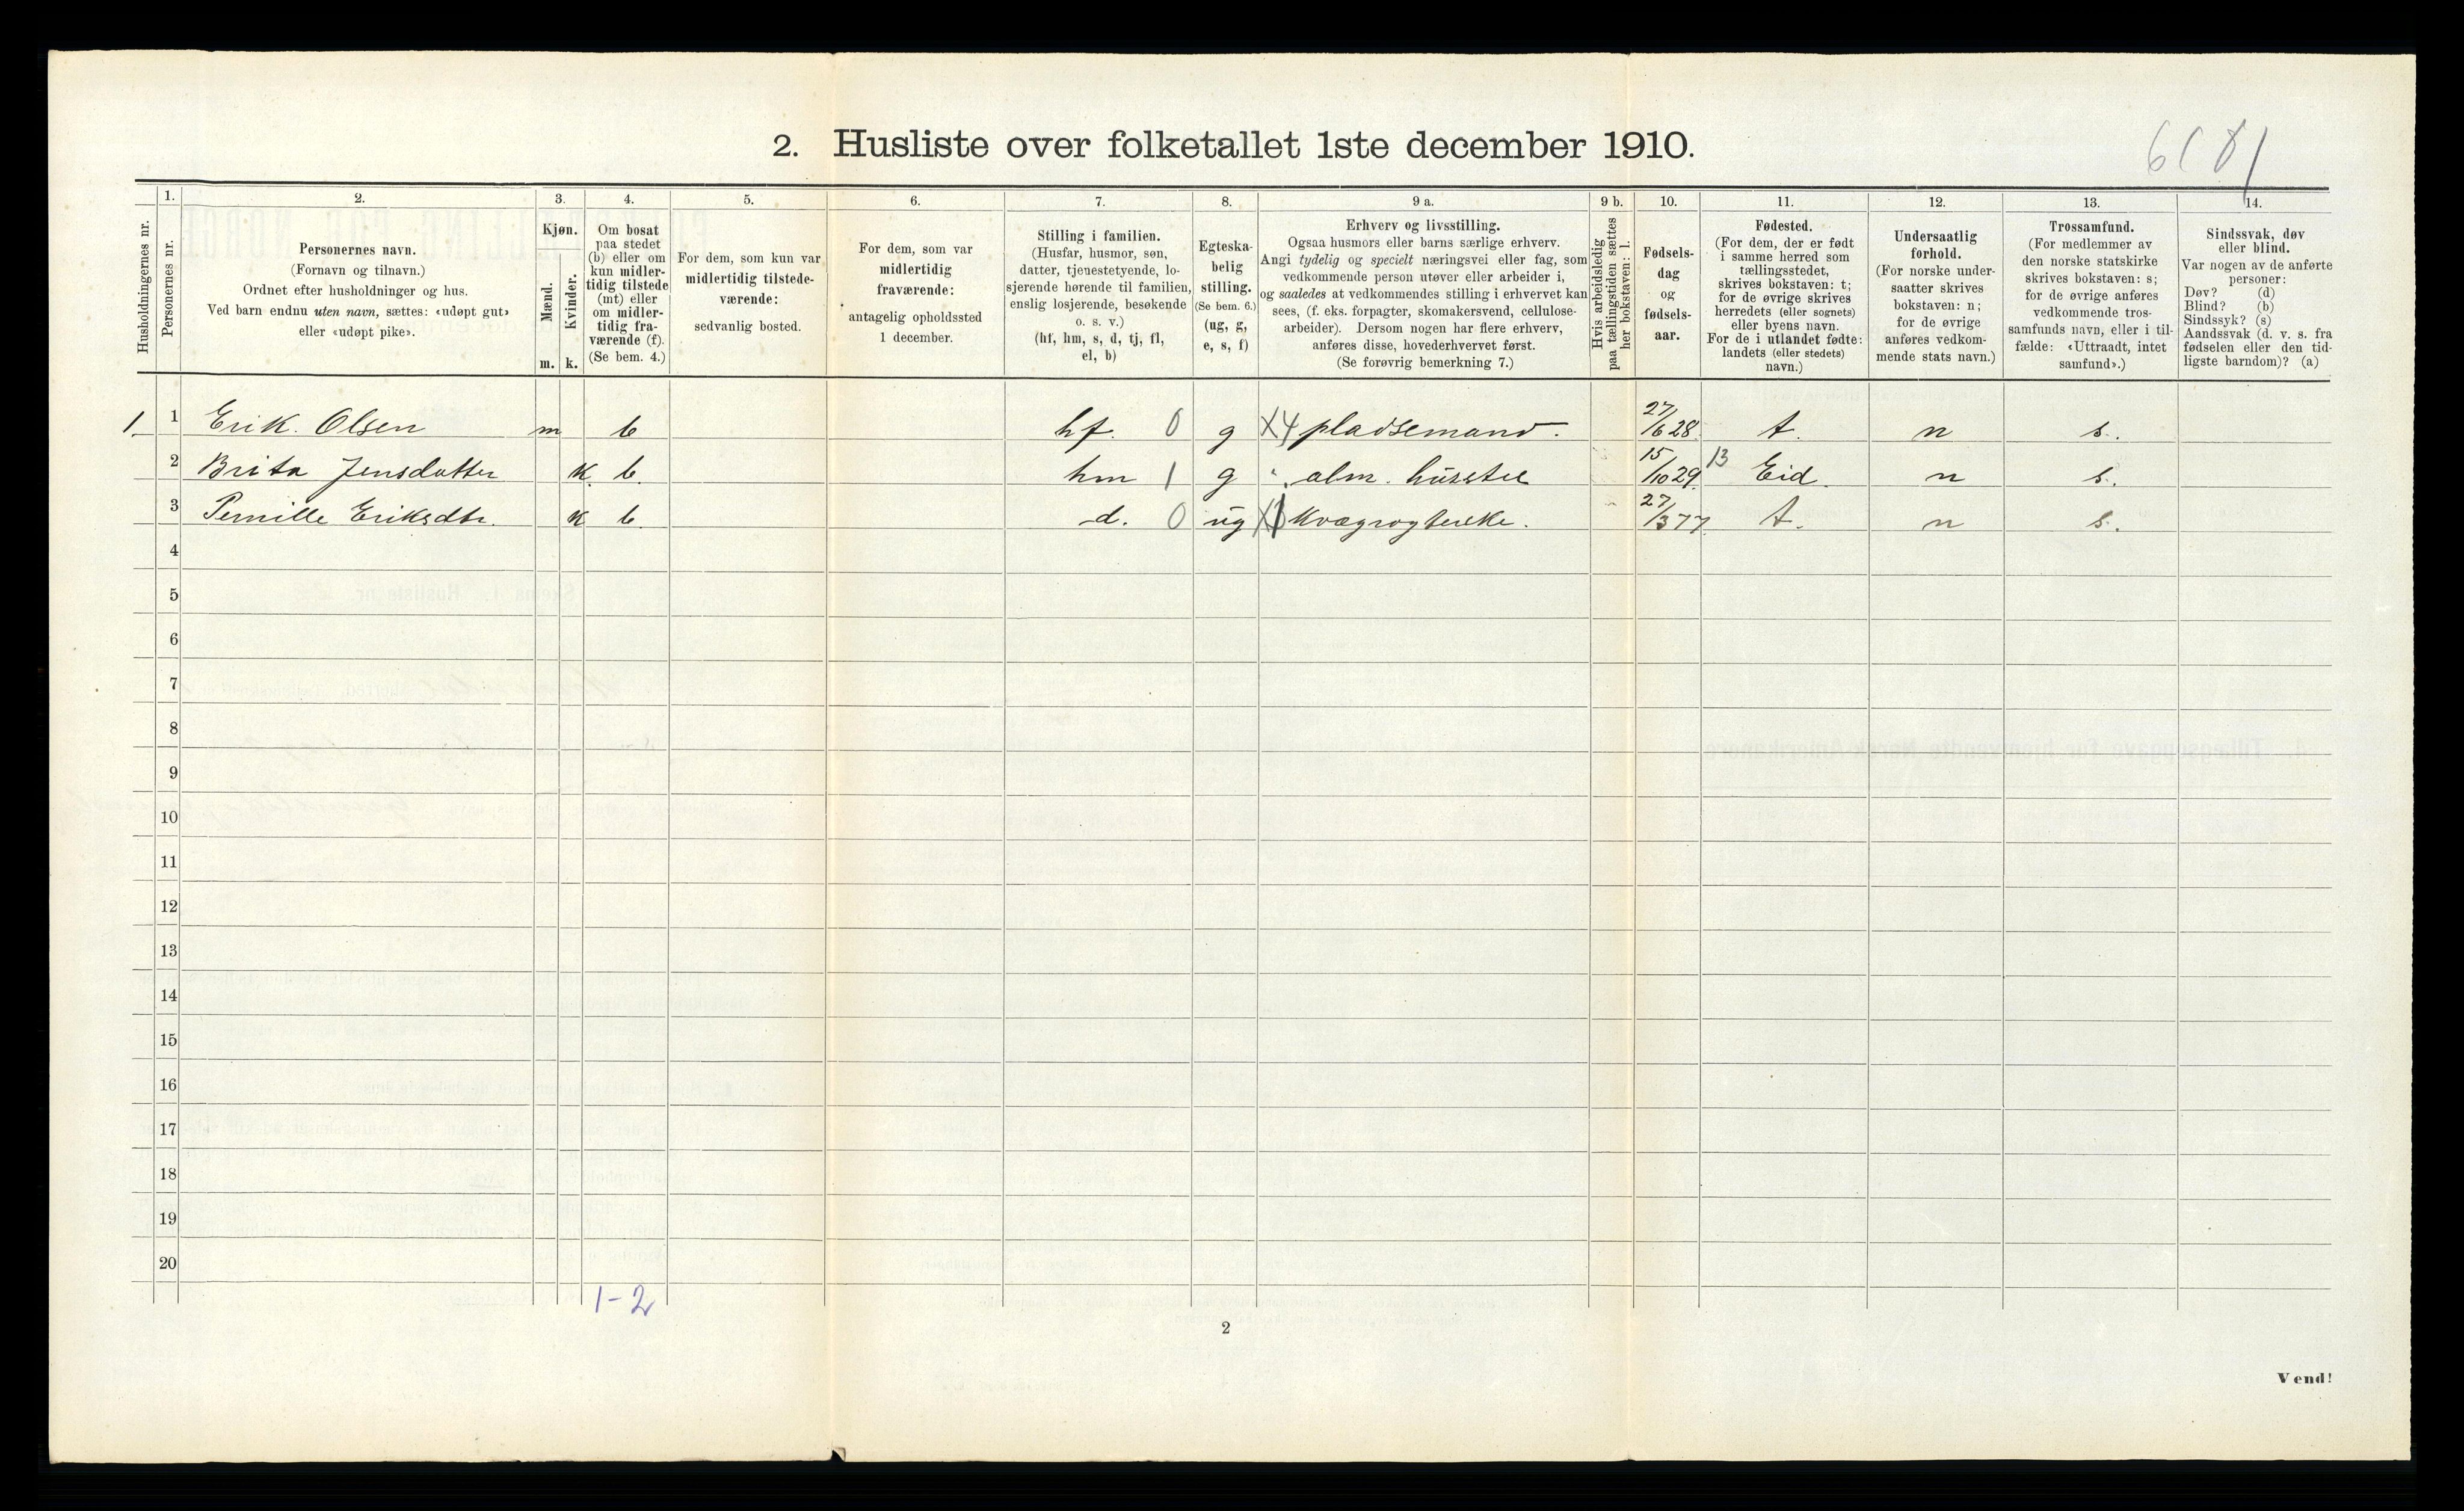 2. Husliste over folketallet 1ste december 1910.
Husholdningernes nr.
1.
Personernes nr.
2.
Personernes navn.
(Fornavn og tilnavn.)
Ordnet efter husholdninger og hus.
Ved barn endnu uten navn, sættes: «udøpt gut»
eller «udøpt pike».
3.
Kjøn.
Mænd.
Kvinder.
m. k.
4.
Om bosat
paa stedet
(b) eller om
kun midler-
tidig tilstede
(mt) eller
om midler-
tidig fra-
værende (f).
(Se bem. 4.)
5.
For dem, som kun var
midlertidig tilstede-
værende:
sedvanlig bosted.
6.
For dem, som var
midlertidig
fraværende:
antagelig opholdssted
1 december.
7.
Stilling i familien.
(Husfar, husmor, søn,
datter, tjenestetyende, lo-
sjerende hørende til familien,
enslig losjerende, besøkende
o. s. v.)
(hf, hm, s, d, tj, fl,
el, b)
8.
Egteska-
belig
stilling.
(Se bem. 6.)
(ug, g,
e, s, f)
9 a.
Erhverv og livsstilling.
Ogsaa husmors eller barns særlige erhverv.
Angi tydelig og specielt næringsvei eller fag, som
vedkommende person utøver eller arbeider i,
og saaledes at vedkommendes stilling i erhvervet kan
sees, (f. eks. forpagter, skomakersvend, cellulose-
arbeider). Dersom nogen har flere erhverv,
anføres disse, hovederhvervet først.
(Se forøvrig bemerkning 7.)
9 b.
Hvis arbeidsledig
paa tællingstiden sættes
her bokstaven: l.
10.
Fødsels-
dag
og
fødsels-
aar.
11.
Fødested.
(For dem, der er født
i samme herred som
tællingsstedet,
skrives bokstaven: t;
for de øvrige skrives
herredets (eller sognets)
eller byens navn.
For de i utlandet fødte:
landets (eller stedets)
navn.)
12.
Undersaatlig
forhold.
(For norske under-
saatter skrives
bokstaven: n;
for de øvrige
anføres vedkom-
mende stats navn.)
13.
Trossamfund.
(For medlemmer av
den norske statskirke
skrives bokstaven: s;
for de øvrige anføres
vedkommende tros-
samfunds navn, eller i til-
fælde: «Uttraadt, intet
samfund».)
14.
Sindssvak, døv
eller blind.
Var nogen av de anførte
personer:
Døv? (d)
Blind? (b)
Sindssyk? (s)
Aandssvak (d. v. s. fra
fødselen eller den tid-
ligste barndom)? (a)
1 1 Erik Olsen m b hf. 0 g X4 pladsemand. 27/6 28 t. n s.
2 Brita Jensdatter k b. hm 1 g alm. husstel 15/10 29 13 Eid. n s.
3 Pernille Eriksdtr. k b. d. 0 ug Kvægrogterske. 27/3 77 t. n s.
4
5
6
7
8
9
10
11
12
13
14
15
16
17
18
19
20
1-2
2
Vend!